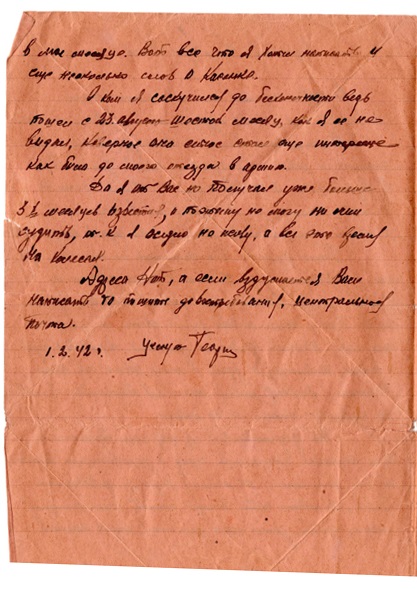 в мае месяце. Вот все что я хотел написать и
еще несколько слов о
О ком я соскучился до бесконечности ведь
пошел с 23 августа шестой месяц, как я ее не
видел, наверное она сейчас стала еще интересней
как было до моего отъезда в армию.
Да я от Вас не получаю уже больше
3½ месяцев известия, и поэтому не могу ни о чем
судить, т. к я и все это время
на колесах.
Адреса нет, а если вздумается Вам
написать то пишите до востребования, центральная
почта.
1.2.42 г.